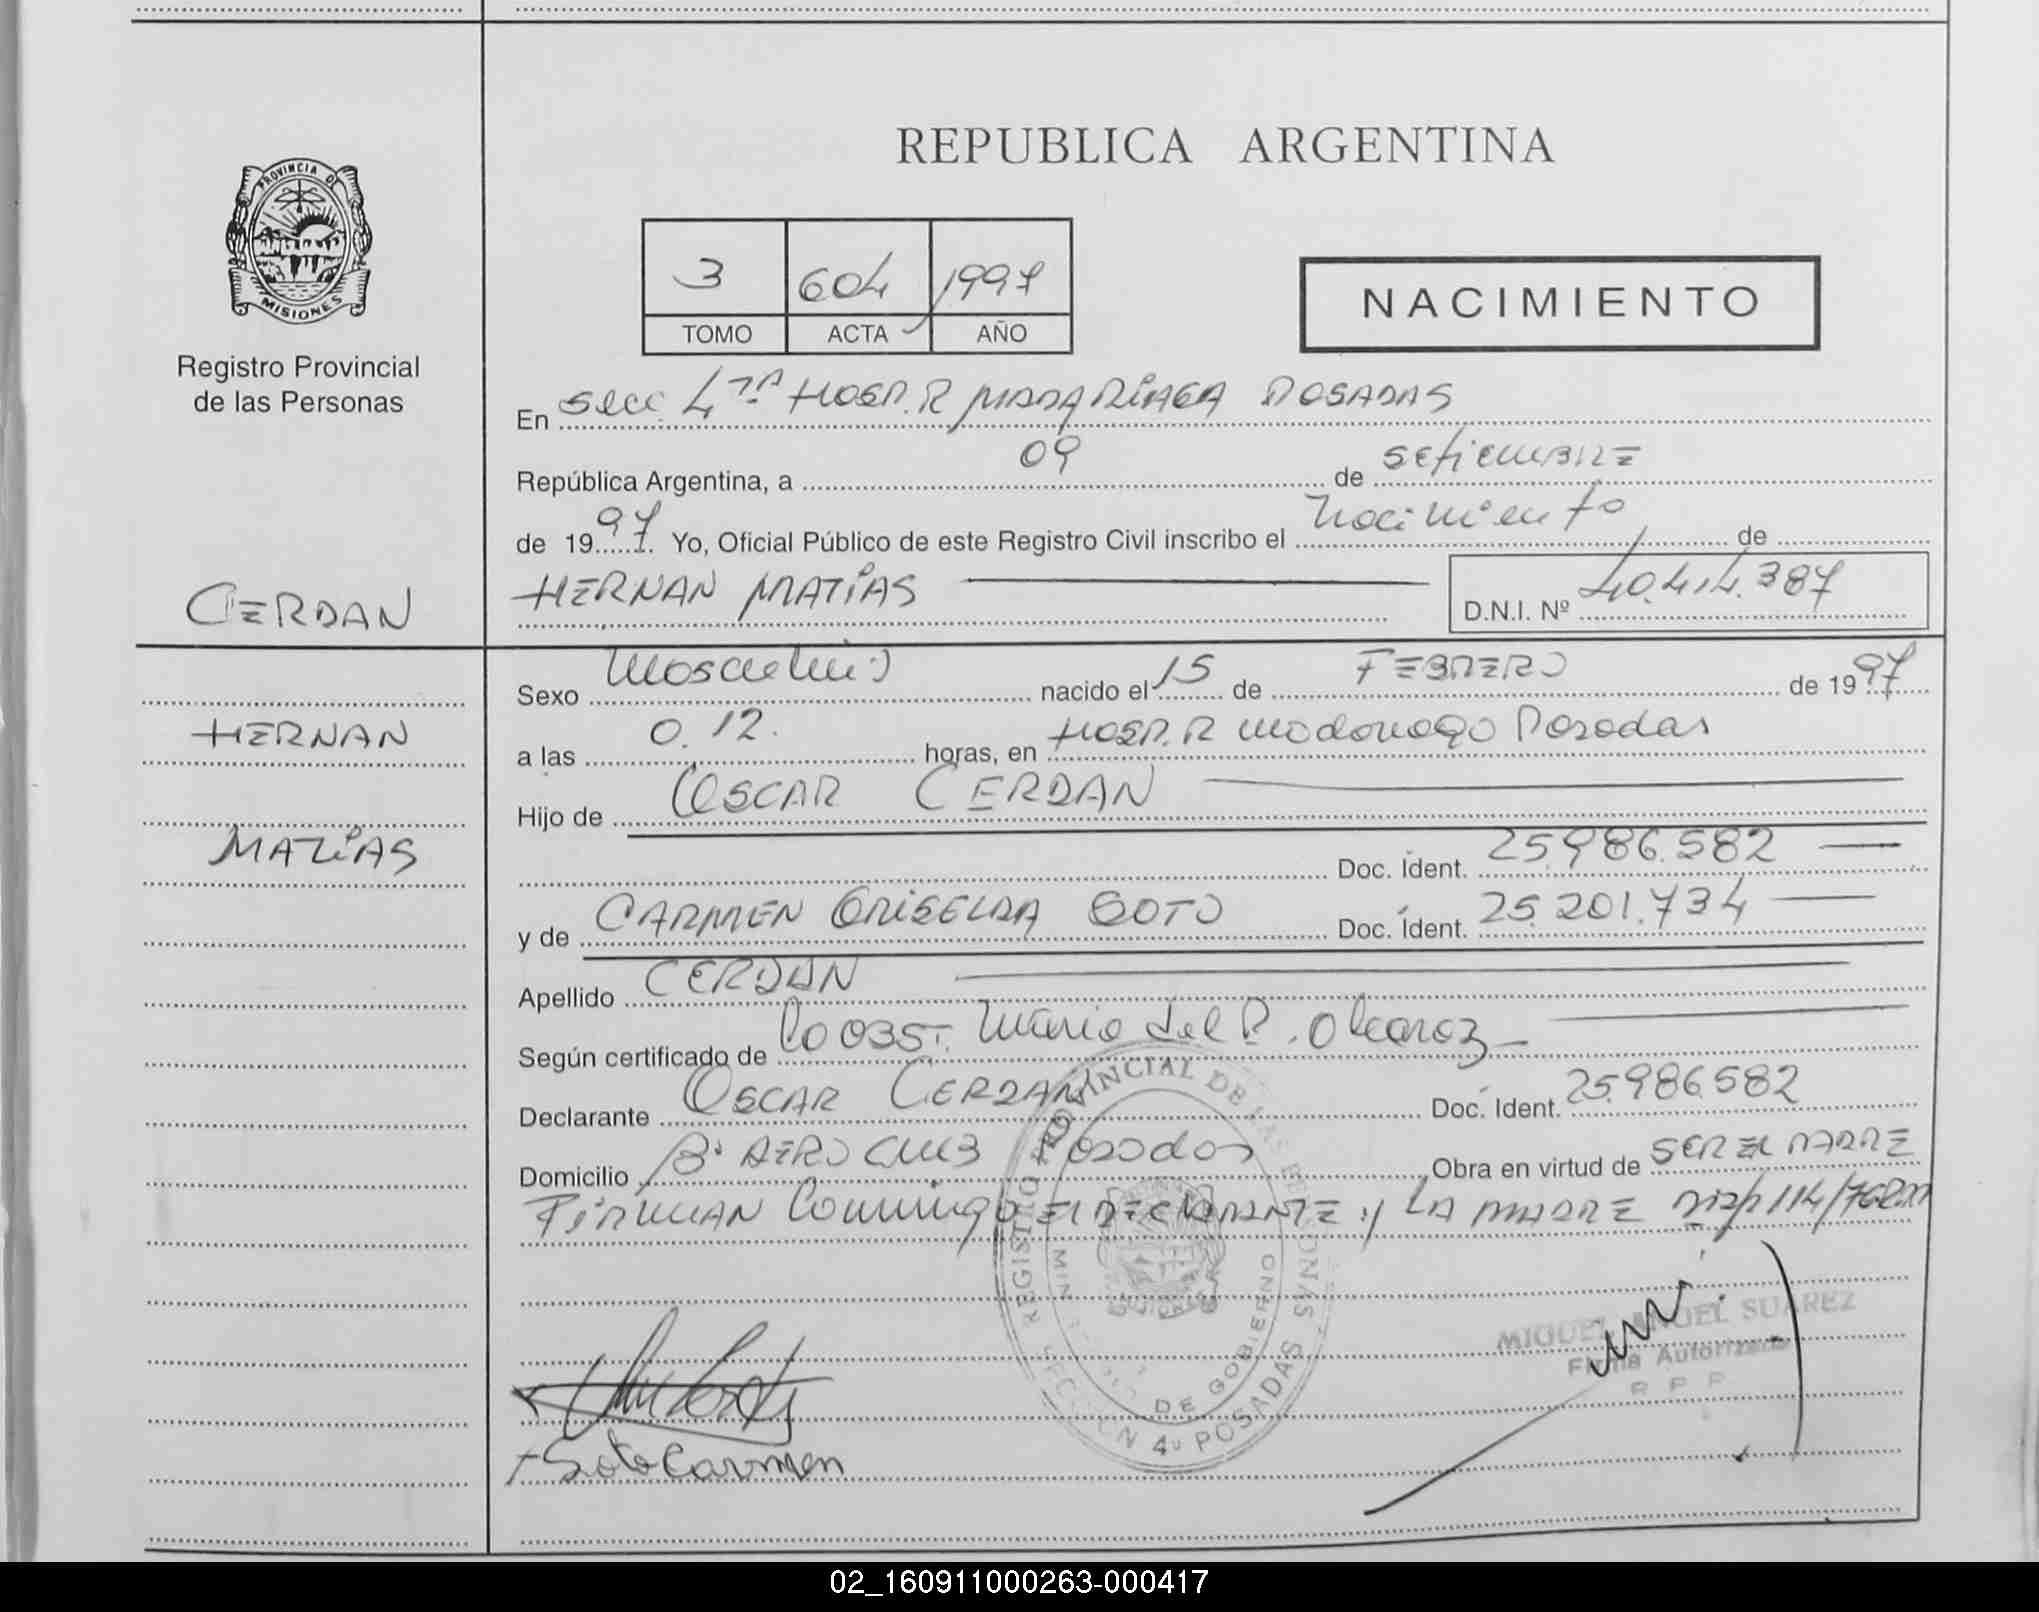 REPUBLICA ARGENTINA
PROVINCIA DE
MISIONES
Registro Provincial
de las Personas
3 604 1997
TOMO ACTA AÑO
NACIMIENTO
En secc 4ta HOSP. R MADARIAGA POSADAS
República Argentina, a 09 de setiembre
de 1997. Yo, Oficial Público de este Registro Civil inscribo el nacimiento de
HERNAN MATIAS
D.N.I. Nº 40.414.387
CERDAN
HERNAN
MATIAS
Sexo Masculino nacido el 15 de FEBRERO de 1997
a las 0.12. horas, en HOSP. R Madariaga Posadas
Hijo de OSCAR CERDAN
Doc. Ident. 25.986.582
y de CARMEN GRISELDA SOTO Doc. Ident. 25.201.734
Apellido CERDAN
Según certificado de la OBST. Maria del R. Alcaraz
Declarante OSCAR CERDAN Doc. Ident. 25.986.582
Domicilio Bº AERO CLUB Posadas Obra en virtud de SER EL PADRE
FIRMAN Conmigo El DECLARANTE y LA MADRE Disp 114/76
REGISTRO PROVINCIAL DE LAS PERSONAS
SECCION 4º POSADAS
DE GOBIERNO
MIGUEL ANGEL SUAREZ
Firma Autorizada
R P P
Soto Carmen
02_160911000263-000417